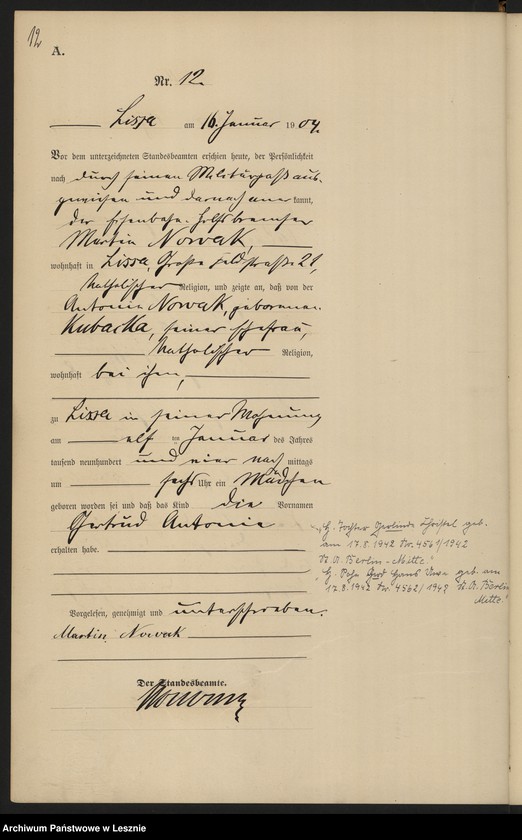 12
A.
Nr. 12.
Lissa am 16. Januar 1904.
Vor dem unterzeichneten Standesbeamten erschien heute, der Persönlichkeit
nach durch seinen Militärpaß aus-
gewiesen und darnach anerkannt,
der Eisenbahn-Hilfsbremser
Martin Nowak,
wohnhaft in Lissa, Große
katholischer Religion, und zeigte an, daß von der
Antonie Nowak, geborenen
Kubacka, seiner Ehefrau,
katholischer Religion,
wohnhaft bei ihm,
zu Lissa in seiner Wohnung
am elf ten Januar des Jahres
tausend neunhundert und vier nach mittags
um sechs Uhr ein Mädchen
geboren worden sei und daß das Kind die Vornamen
Gertrud Antonie
erhalten habe.
Vorgelesen, genehmigt und unterschrieben.
Martin Nowak
Der Standesbeamte.
G. Tochter Gerlinde Christel geb.
am 17.8.1942 Nr. 4561/1942
St. A. Berlin-Mitte."
"G. Sohn Gerd Hans Uwe geb. am
17.8.1942 Nr. 4562/1942 St. A. Berlin
Mitte."
Archiwum Państwowe w Lesznie